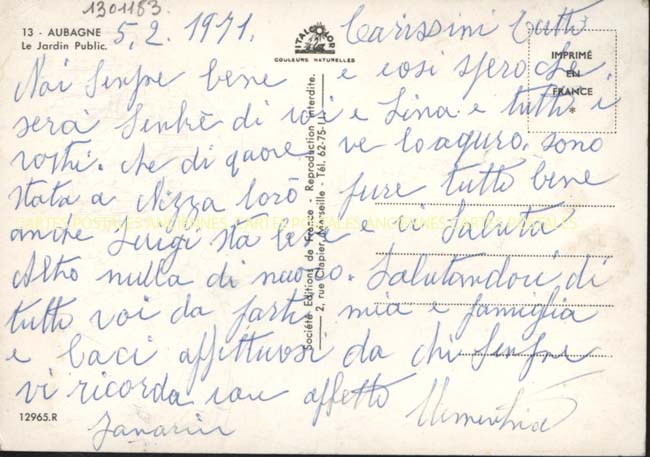 1301183
13 - AUBAGNE
Le Jardin Public.
5. 2. 1971.
ITALCOLOR
COULEURS NATURELLES
Carissimi Tutti
IMPRIMÉ
EN
FRANCE
*
Noi Senpre bene e cosi spero che
sera Senpre di voi e Lina e tutti i
vostri. che di quore ve lo aguro. sono
stata a Nizza loro fure tutto bene
anche Luigi sta bene e vi Saluta
Altro nulla di nuovo. Salutandovi di
tutti voi da parte mia e famiglia
e baci affittuosi da chi Senpre
vi ricorda con affetto
Société Editions de France - Reproduction interdite.
2, rue Clapier Marseille - Tél. 62-75-11
CARTES POSTALES ANCIENNES CARTES POSTALES ANCIENNES CARTES POSTALES
12965.R